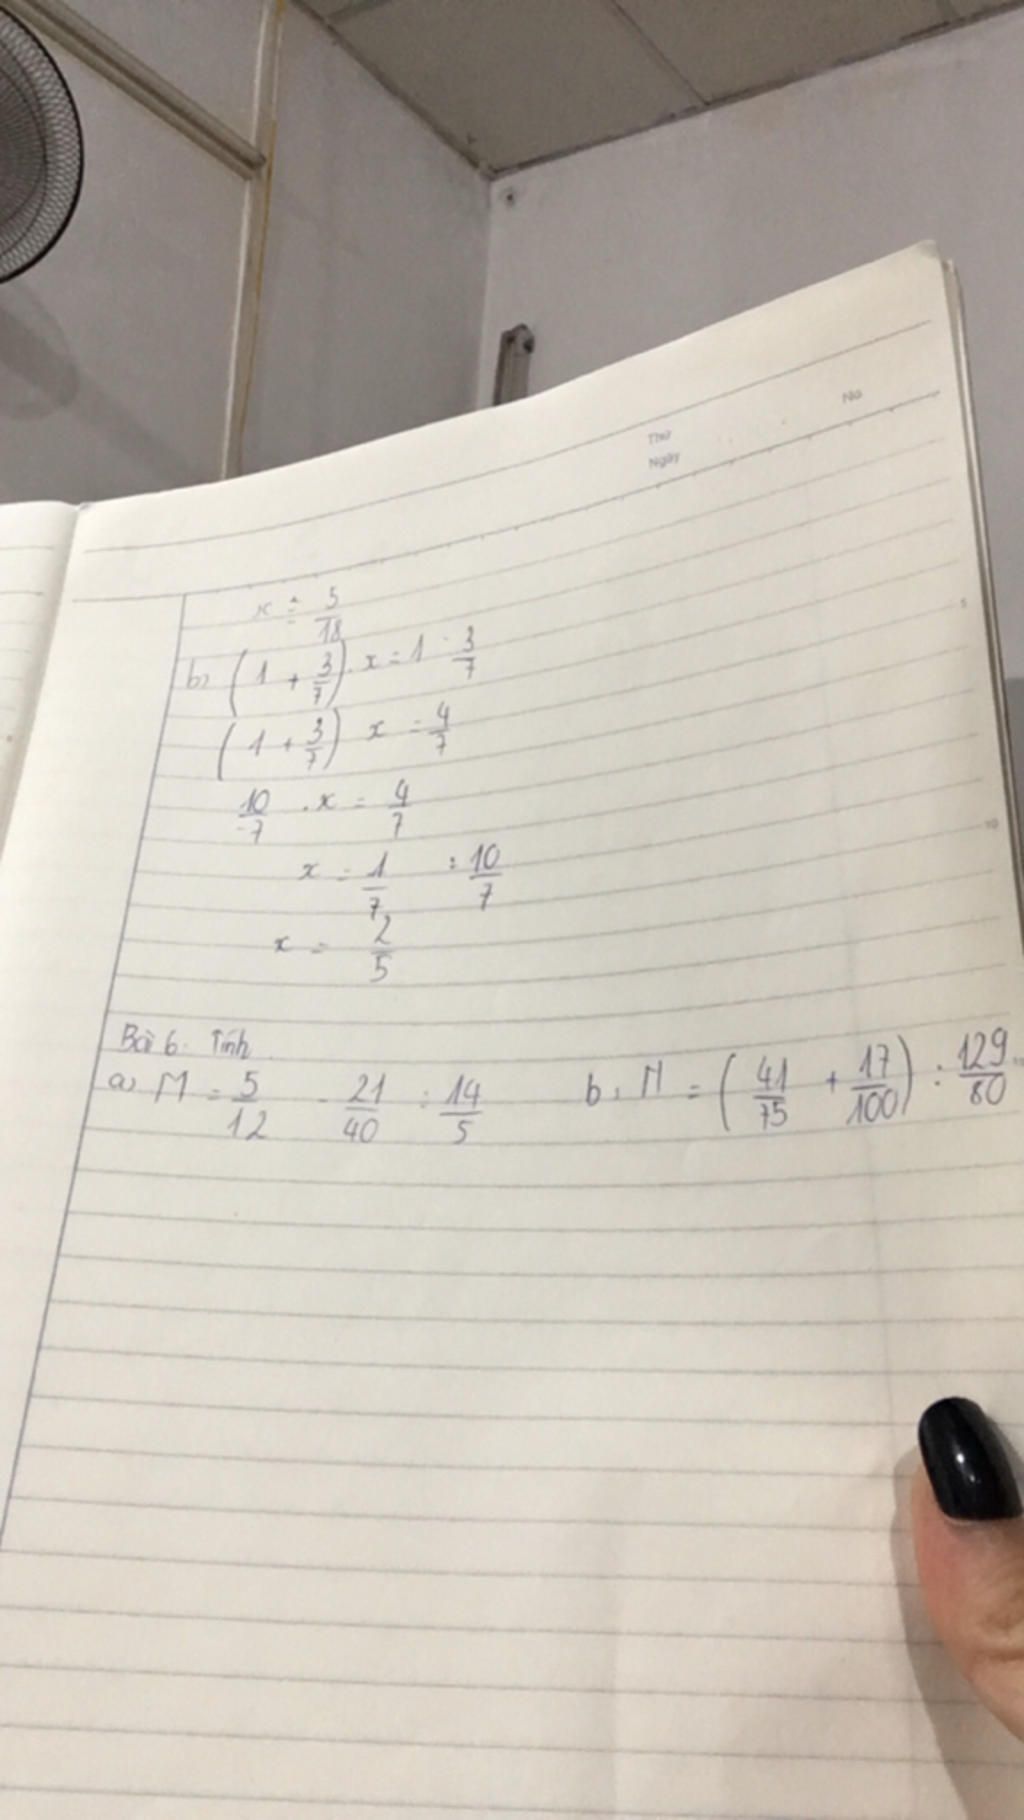 Thứ
Ngày
No
x = 5/18
b, (1 + 3/7) . x = 1 - 3/7
(1 + 3/7) x = 4/7
10/7 . x = 4/7
x = 1/7 : 10/7
x = 2/5
Bài 6. Tính
a, M = 5/12 - 21/40 : 14/5 b, N = (41/75 + 17/100) : 129/80
5
10